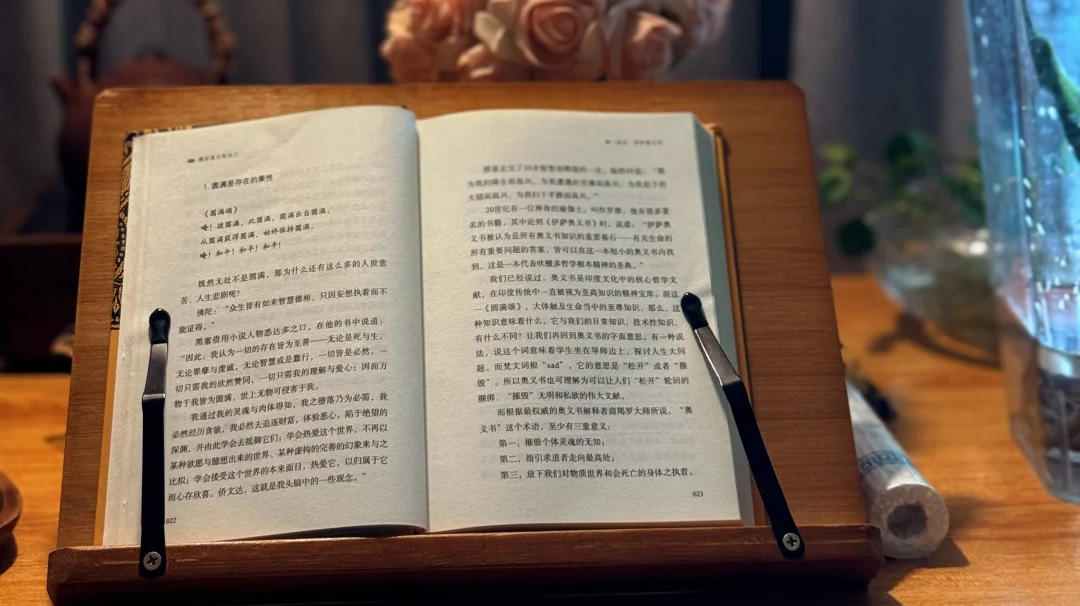 1. 圆满是存在的秉性
《圆满颂》
唵！彼圆满，此圆满，圆满出自圆满，
从圆满获得圆满，始终保持圆满。
唵！和平！和平！和平！
既然无处不是圆满，那为什么还有这么多的人世悲
苦、人生悲剧呢？
佛陀：“众生皆有如来智慧德相，只因妄想执着而不
能证得。”
黑塞借用小说人物悉达多之口，在他的书中说道：
“因此，我认为一切的存在皆为至善——无论是死与生、
无论罪孽与虔诚，无论智慧或是蠢行，一切皆是必然，一
切只需我的欣然赞同，一切只需我的理解与爱心；因而万
物于我皆为圆满，世上无物可侵害于我。
我通过我的灵魂与肉体得知，我之堕落乃为必需，我
必然经历贪欲，我必然去追逐财富，体验恶心，陷于绝望的
深渊，并由此学会去抵御它们；学会热爱这个世界，不再以
某种欲愿与臆想出来的世界、某种虚构的完善的幻象来与之
比拟；学会接受这个世界的本来面目，热爱它，以归属于它
而心存欣喜。侨文达，这就是我头脑中的一些观念。”
022
20世纪有一位神奇的瑜伽士，叫作罗摩，他有很多著
名的书籍，其中论到《伊萨奥义书》时，说道：“伊萨奥
义书被认为是所有奥义书知识的重要基石——有关生命的
所有重要问题的答案，皆可以在这一本短小的奥义书内找
到。这是一本代表吠檀多哲学根本精神的圣典。”
我们已经说过，奥义书是印度文化中的核心哲学文
献，在印度传统中一直被视为至高知识的精神宝库。而这
一《圆满颂》，大体触及生命当中的至尊知识。那么，这
种知识意味着什么，它与我们的日常知识、技术性知识，
有什么不同？让我们再回到奥义书的字面意思，有一种说
法，说这个词意味着学生坐在导师边上，探讨人生大问
题。而梵文词根“sad”，它的意思是“松开”或者“摧
毁”。所以奥义书也可理解为可以让人们“松开”轮回的
捆绑，“摧毁”无明和私欲的伟大文献。
而根据最权威的奥义书解释者商羯罗大师所说，“奥
义书”这个术语，至少有三重意义：
第一，摧毁个体灵魂的无知；
第二，指引求道者走向最高处；
第三，放下我们对物质世界和会死亡的身体之执着。
023